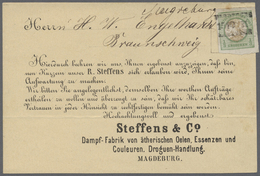 Magdeburg
Herrn H. W. Engelhardt
Braunschweig
Hierdurch beehren wir uns Ihnen ergebenst anzuzeigen, daß
unser R. Steffens sich erlauben wird, Ihnen seine
Aufwartung zu machen.
Wir bitten Sie angelegentlichst, demselben Ihre werthen Aufträge
ertheilen zu wollen und überzeugt zu sein, daß wir Ihr
Vertrauen in jeder Hinsicht zu rechtfertigen bemüht sein werden.
Hochachtungsvoll und ergebenst
Steffens & Co
Dampf-Fabrik von ätherischen Oelen, Essenzen und
Couleuren. Droguen-Handlung.
MAGDEBURG.